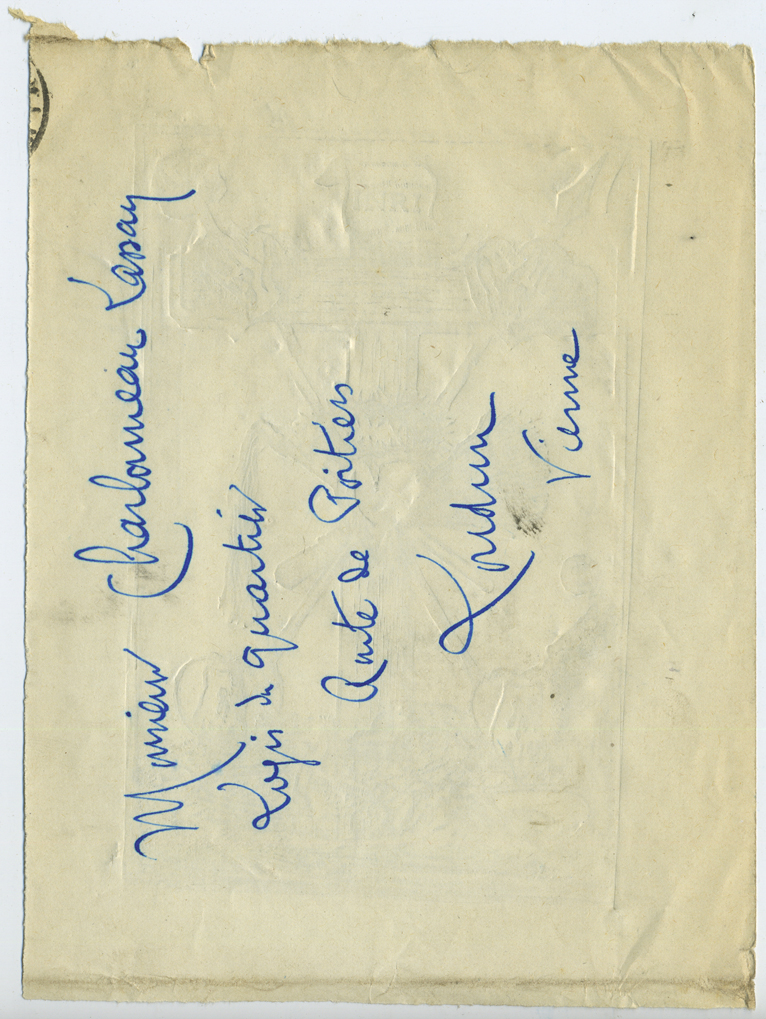 Monsieur Charbonneau Lassay
Logis du quartier
Route de Poitiers
Loudun
Vienne